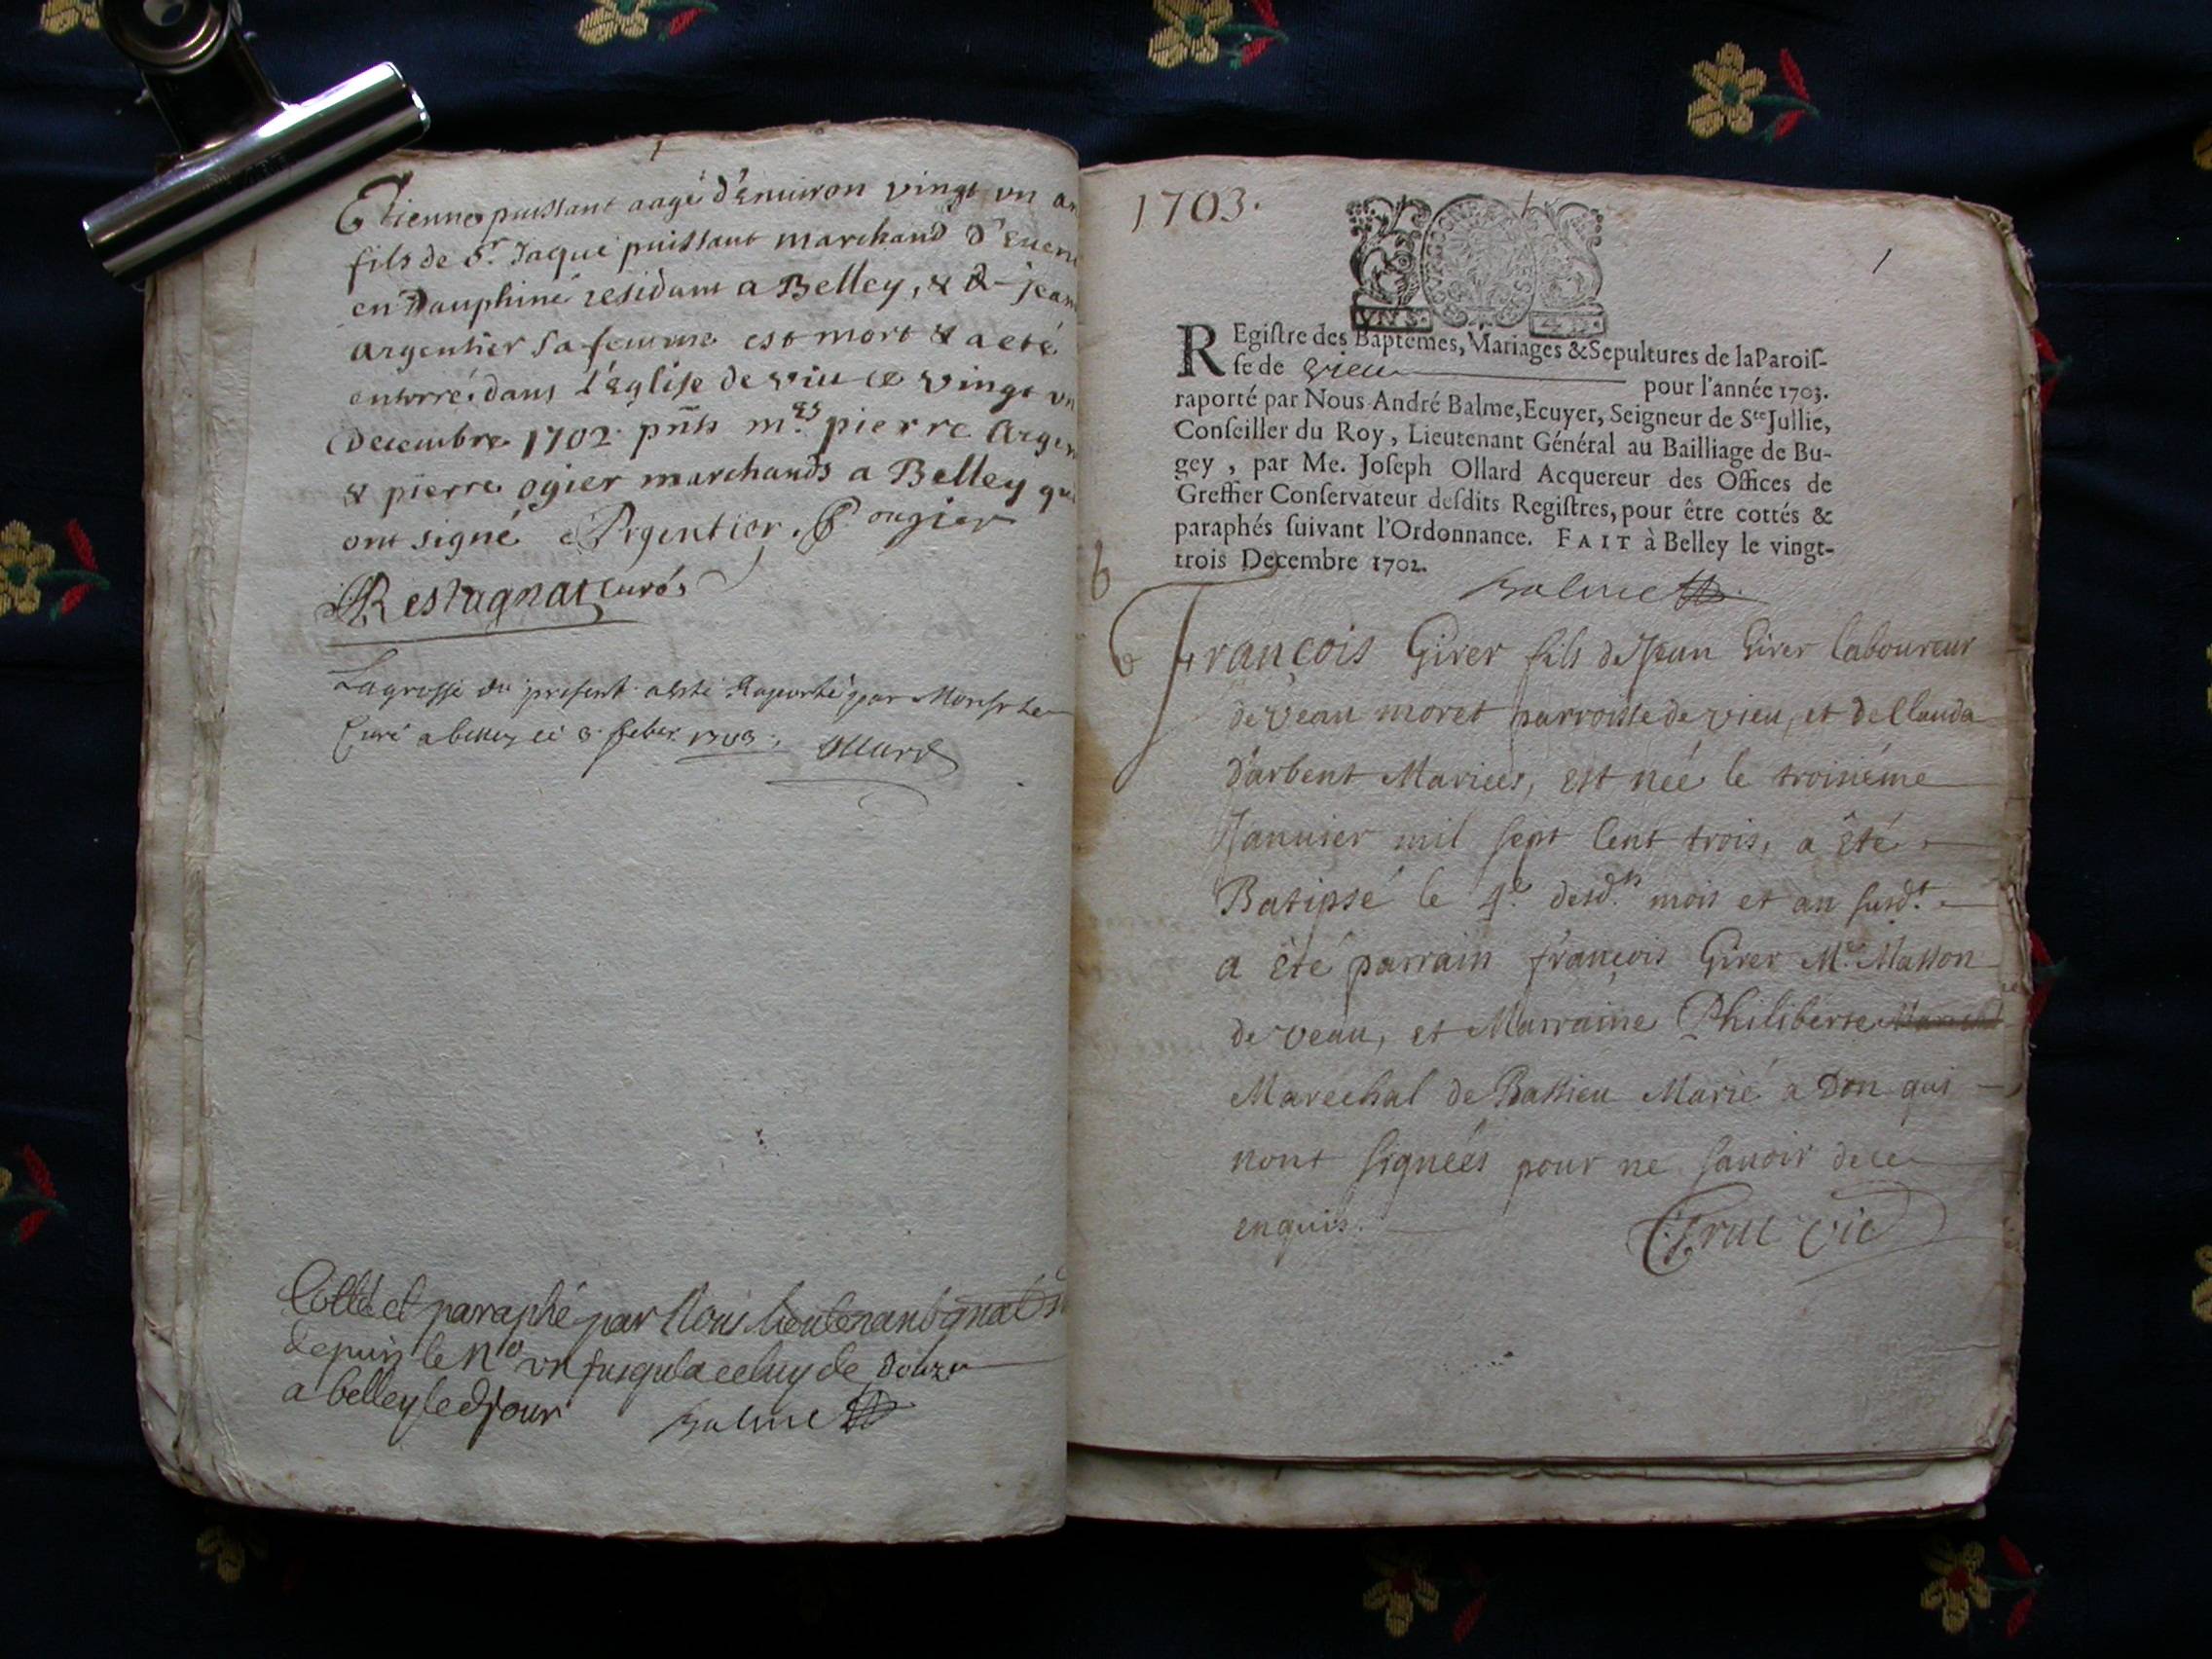 Etienne puissant aagé d'enuiron vingt vn an
fils de Sr. Jaque puissant marchand d'
en Dauphiné residant a Belley, & d- jean
Argentier sa femme est mort & a eté
enterré dans l'Eglise de viu ce vingt vn
Decembre 1702. pnts mes pierre Argen
& pierre ogier marchands a Belley qui
ont signé Argentier. P. ougier
Restagnat curé
La grosse du present a esté Raportée par Monsr le
Curé a belley ce 3. feber. 1703. Ollard
Cotté et paraphé par Nous lieutenant gnal
depuis le No vn jusqu'a celuy de douze
a belley led jour Balme
1703.
1
VN S. 4 D.
REgiſtre des Baptêmes, Mariages & Sepultures de la Paroiſ-
ſe de vieu pour l'année 1703.
raporté par Nous André Balme, Ecuyer, Seigneur de Ste Jullie,
Conſeiller du Roy, Lieutenant Général au Bailliage de Bu-
gey, par Me. Joſeph Ollard Acquereur des Offices de
Greffier Conſervateur deſdits Regiſtres, pour être cottés &
paraphés ſuivant l'Ordonnance. FAIT à Belley le vingt-
trois Decembre 1702.
Balme
b
François Girer fils de Jean Girer laboureur
de veau moret parroisse de vieu, et de Clauda
d'arbent Mariés, est neé le troisiéme
Januier mil sept Cent trois, a été
Batipsé le 4e. desd.ts mois et an susd.t
a été parrain françois Girer Me. Masson
de veau, et Marraine Philiberte
Maréchal de Bassieu Marié a Don qui
nont signées pour ne sauoir de ce
enquis.